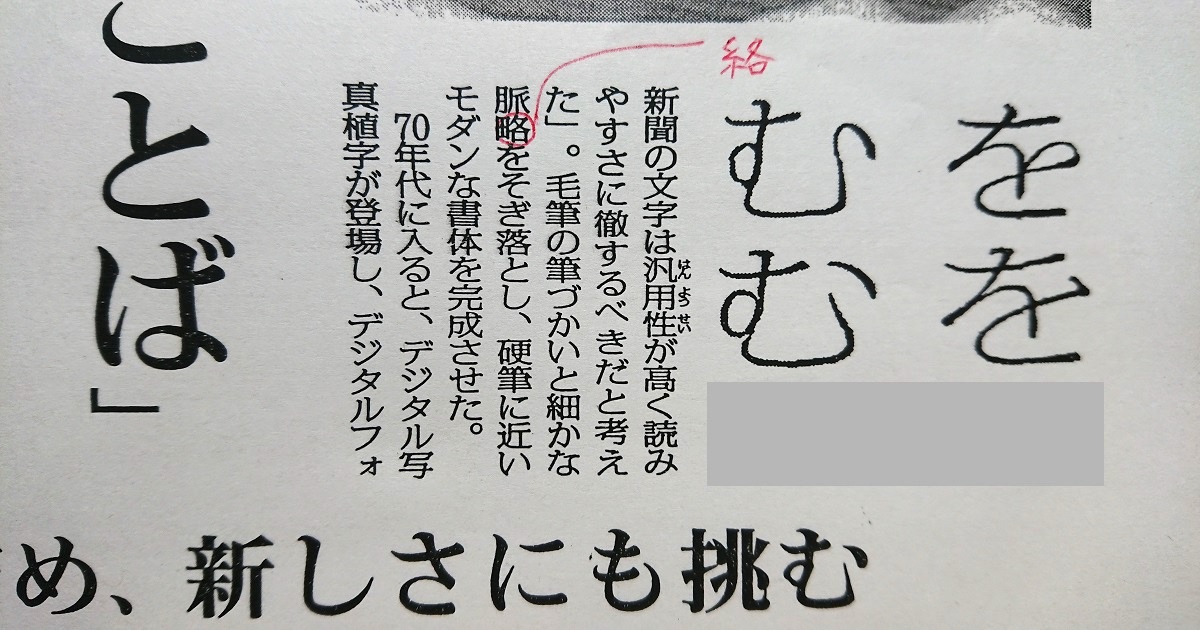 をを
むむ
絡
はんようせい
新聞の文字は汎用性が高く読み
やすさに徹するべきだと考え
た」。毛筆の筆づかいと細かな
脈略をそぎ落とし、硬筆に近い
モダンな書体を完成させた。
70年代に入ると、デジタル写
真植字が登場し、デジタルフォ
ことば」
め、新しさにも挑む